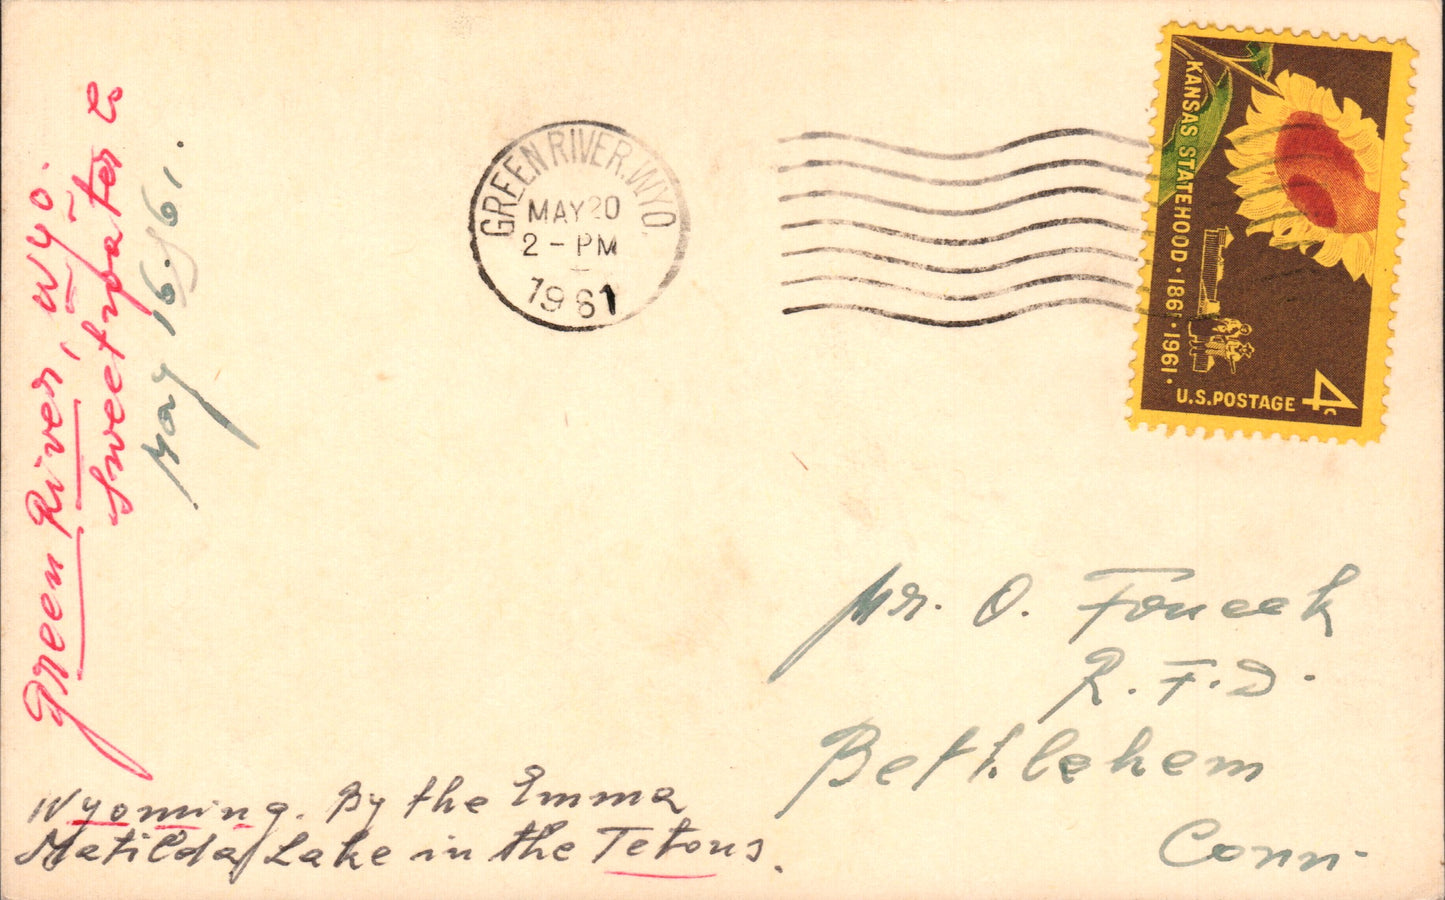 Green River, Wyo.
Sweetwater Co
May 16-61.
GREEN RIVER, WYO.
MAY 20
2 - PM
1961
KANSAS STATEHOOD · 1861 · 1961 ·
U.S. POSTAGE 4c
Mr. O. Foucek
R. F. D.
Bethlehem
Conn.
Wyoming. By the Emma
Matilda Lake in the Tetons.